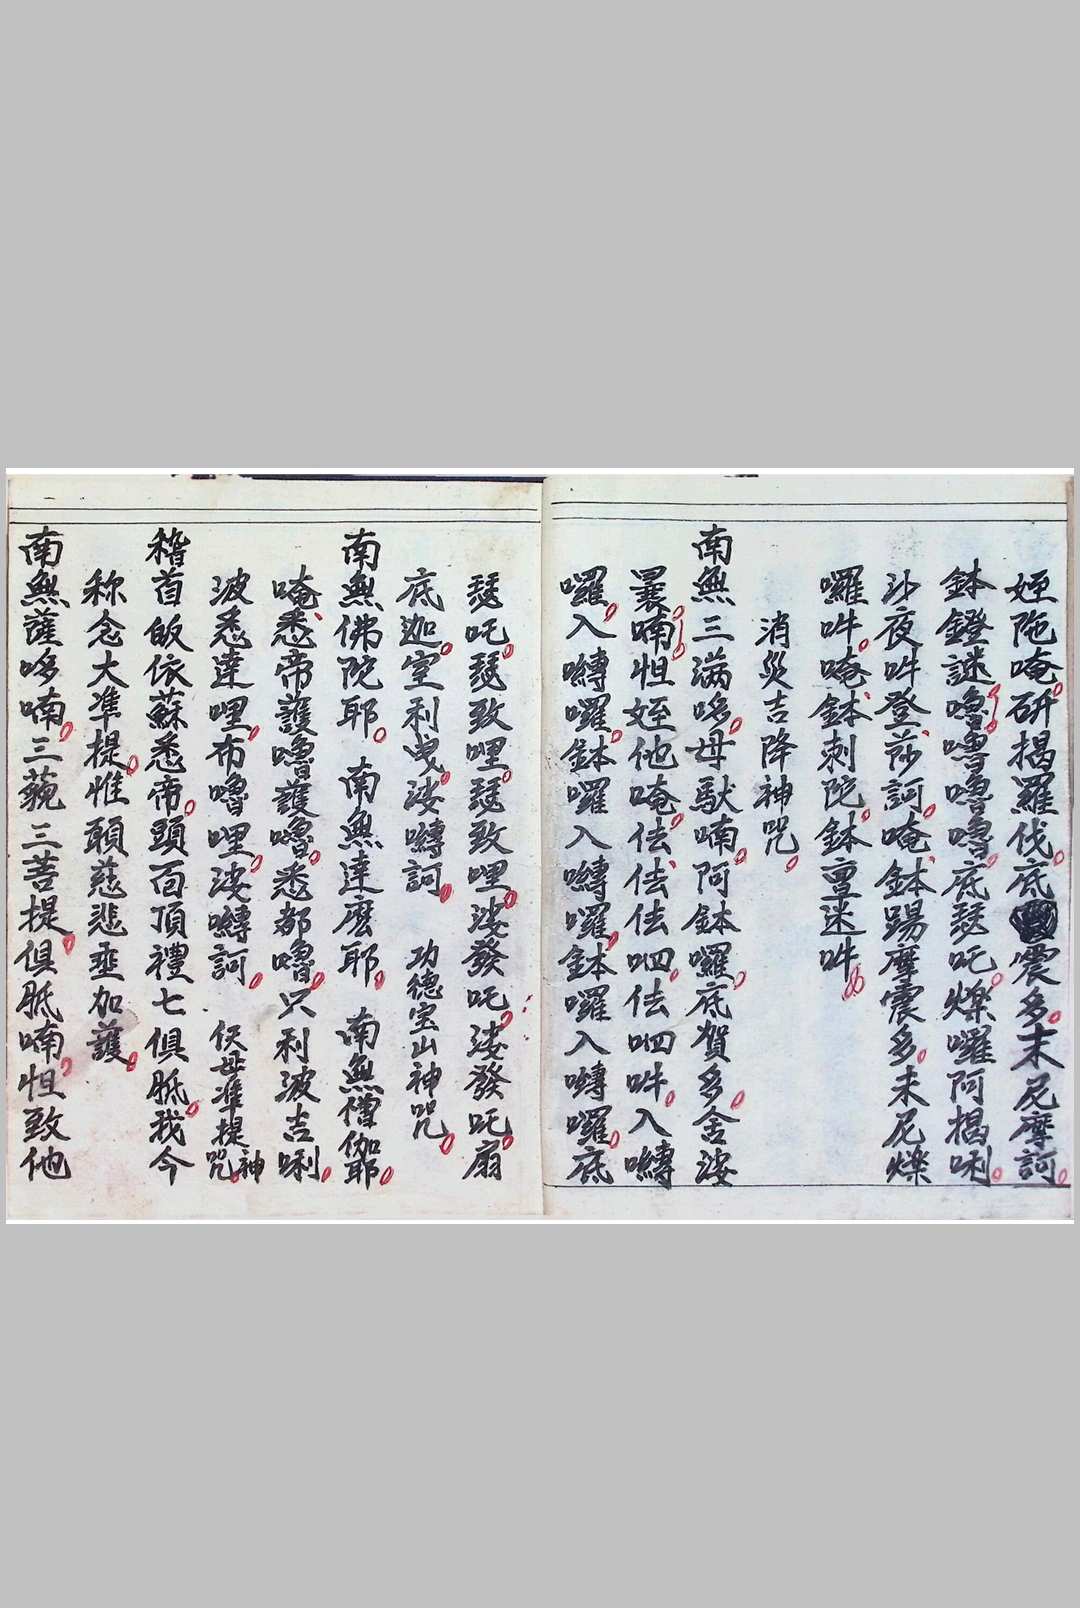 姪陁唵硏揭羅伐底震多末尼摩訶
鉢鐙謎嚕嚕嚕嚕底瑟吒爍囉阿揭唎
沙夜吽登莎訶唵鉢踢摩震多末尼爍
羅吽唵鉢刺陀鉢亶迷吽
消災吉降神咒
南無三滿哆母馱喃阿鉢囉底賀多舍娑
曩喃怛姪他唵佉佉佉呬佉呬吽入嚩
囉入嚩囉鉢囉入嚩囉鉢囉入嚩囉底
瑟吒瑟致哩瑟致哩娑發吒娑發吒扇
底迦室利曳娑嚩訶 功德宝山神咒
南無佛陀耶 南無達麽耶 南無僧伽耶
唵悉帝護嚕護嚕悉都嚕只利波吉唎
波悉達哩布嚕哩娑嚩訶 伕母準提神咒
稽首皈依蘇悉帝頭百頂禮七俱胝我今
称念大準提惟願慈悲垂加護
南無薩哆喃三藐三菩提俱胝喃怛致他